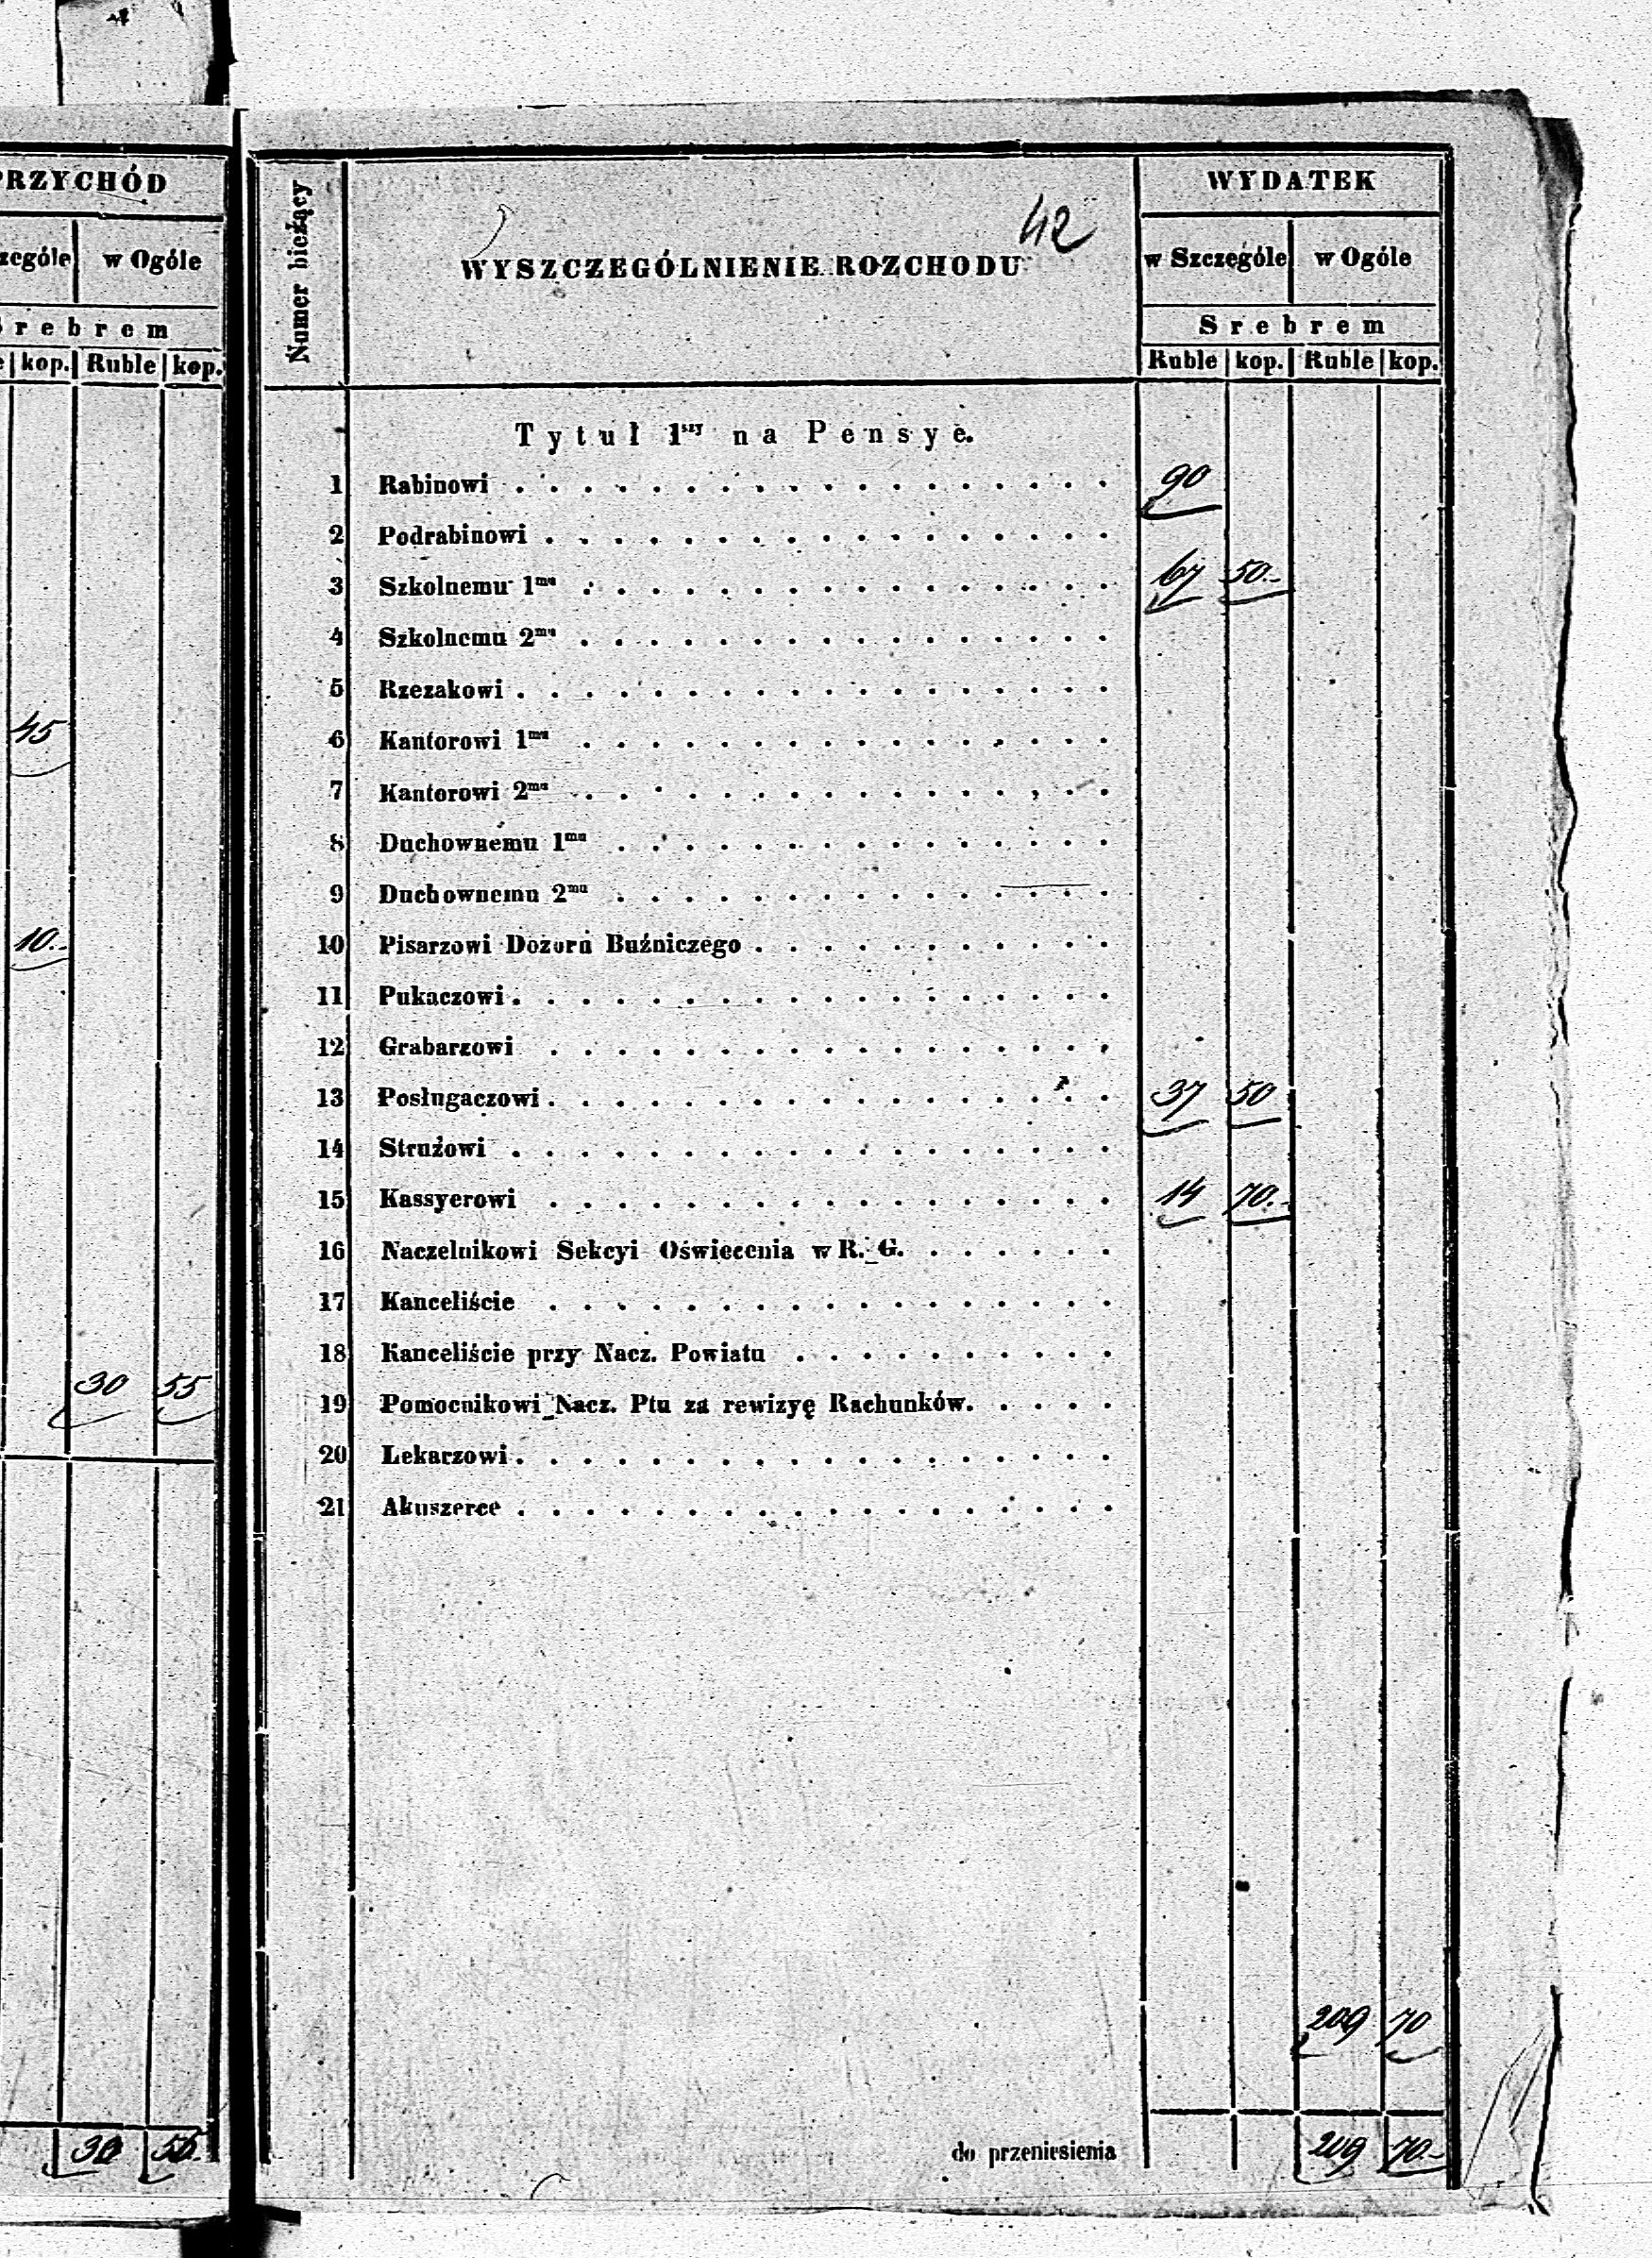 PRZYCHÓD
w Ogóle
Srebrem
kop. Ruble kop.
45
10.
30 55
30 55
42
Numer bieżący
WYSZCZEGÓLNIENIE ROZCHODU
WYDATEK
w Szczególe w Ogóle
Srebrem
Ruble kop. Ruble kop.
Tytuł 1szy na Pensye.
1 Rabinowi 90
2 Podrabinowi
3 Szkolnemu 1mu 67 50
4 Szkolnemu 2mu
5 Rzezakowi
6 Kantorowi 1mu
7 Kantorowi 2mu
8 Duchownemu 1mu
9 Duchownemu 2mu
10 Pisarzowi Dozoru Buźniczego
11 Pukaczowi
12 Grabarzowi
13 Posługaczowi 37 50
14 Strużowi
15 Kassyerowi 14 70
16 Naczelnikowi Sekcyi Oświecenia w R. G.
17 Kanceliście
18 Kanceliście przy Nacz. Powiatu
19 Pomocnikowi Nacz. Ptu za rewizyę Rachunków.
20 Lekarzowi
21 Akuszerce
209 70
do przeniesienia 209 70